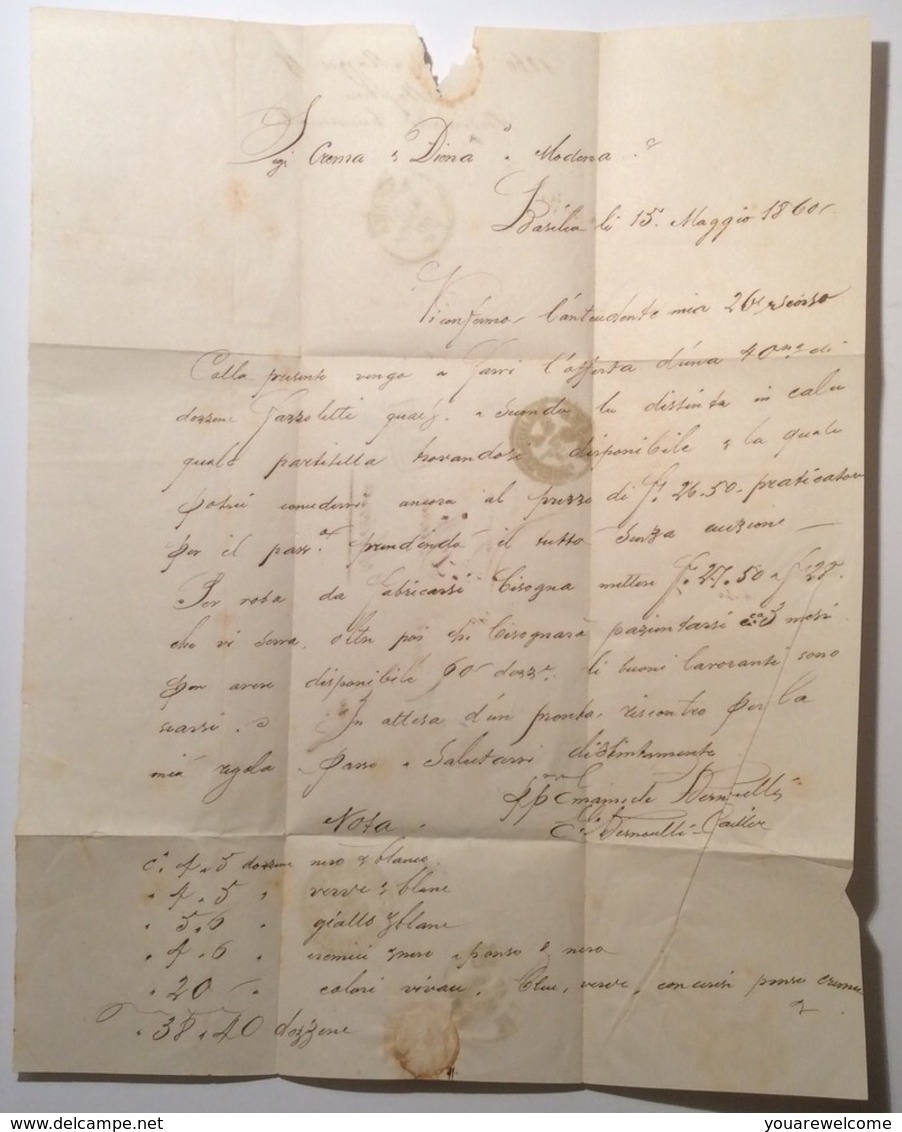 Sigi Crema & Diena a Modena
Basilea li 15 Maggio 1860
Vi confermo l'antecedente mia 26 scorso
Colla presente vengo a farvi l'offerta d'una 40na di
dozzene Fazzoletti a seconda la distinta in calce
quale partitella trovandosi disponibile & la quale
potrei concedervi ancora al prezzo di f. 26.50 praticatovi
per il pass.o prendendo il tutto senza eccezione
Per roba da fabricarsi bisogna mettere f. 27.50 a f 28
che vi serva, oltre poi che bisognerà pazientarsi ca 3 mesi
per avere disponibile 60 dozze. di buoni lavoranti sono
scarsi. In attesa d'un pronto riscontro per la
mia regola Passo a Salutarvi distintamente
pp Emanuele Bernoulli
C. Bernoulli-Cailler
Nota
4 a 5 dozzene nero & blanco
" 4 a 5 " verve & blanc
" 5 a 6 " giallo & blanc
" 4 a 6 " cremici & nero e ponso & nero
" 20 " colori vivaci. bleu, verve, ponso
" 38 a 40 dozzene
youarewelcome